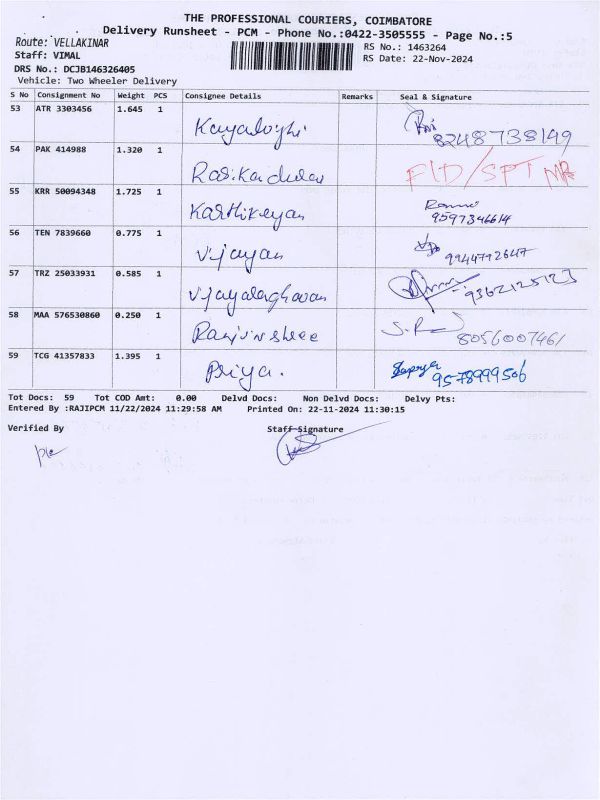 THE PROFESSIONAL COURIERS, COIMBATORE
Delivery Runsheet - PCM - Phone No.:0422-3505555 - Page No.:5
Route: VELLAKINAR
RS No.: 1463264
Staff: VIMAL
RS Date: 22-Nov-2024
DRS No.: DCJB146326405
Vehicle: Two Wheeler Delivery
S No Consignment No Weight PCS Consignee Details Remarks Seal & Signature
53 ATR 3303456 1.645 1
8248738149
54 PAK 414988 1.320 1
FLD/SPT NR
55 KRR 50094348 1.725 1
Karthikeyan 9597346614
56 TEN 7839660 0.775 1
Vijayan 9944792647
57 TRZ 25033931 0.585 1
Vijayalaghavan 9362125123
58 MAA 576530860 0.250 1
Ranjinishree 8056007461
59 TCG 41357833 1.395 1
Priya. 9578999506
Tot Docs: 59 Tot COD Amt: 0.00 Delvd Docs: Non Delvd Docs: Delvy Pts:
Entered By :RAJIPCM 11/22/2024 11:29:58 AM Printed On: 22-11-2024 11:30:15
Verified By Staff Signature